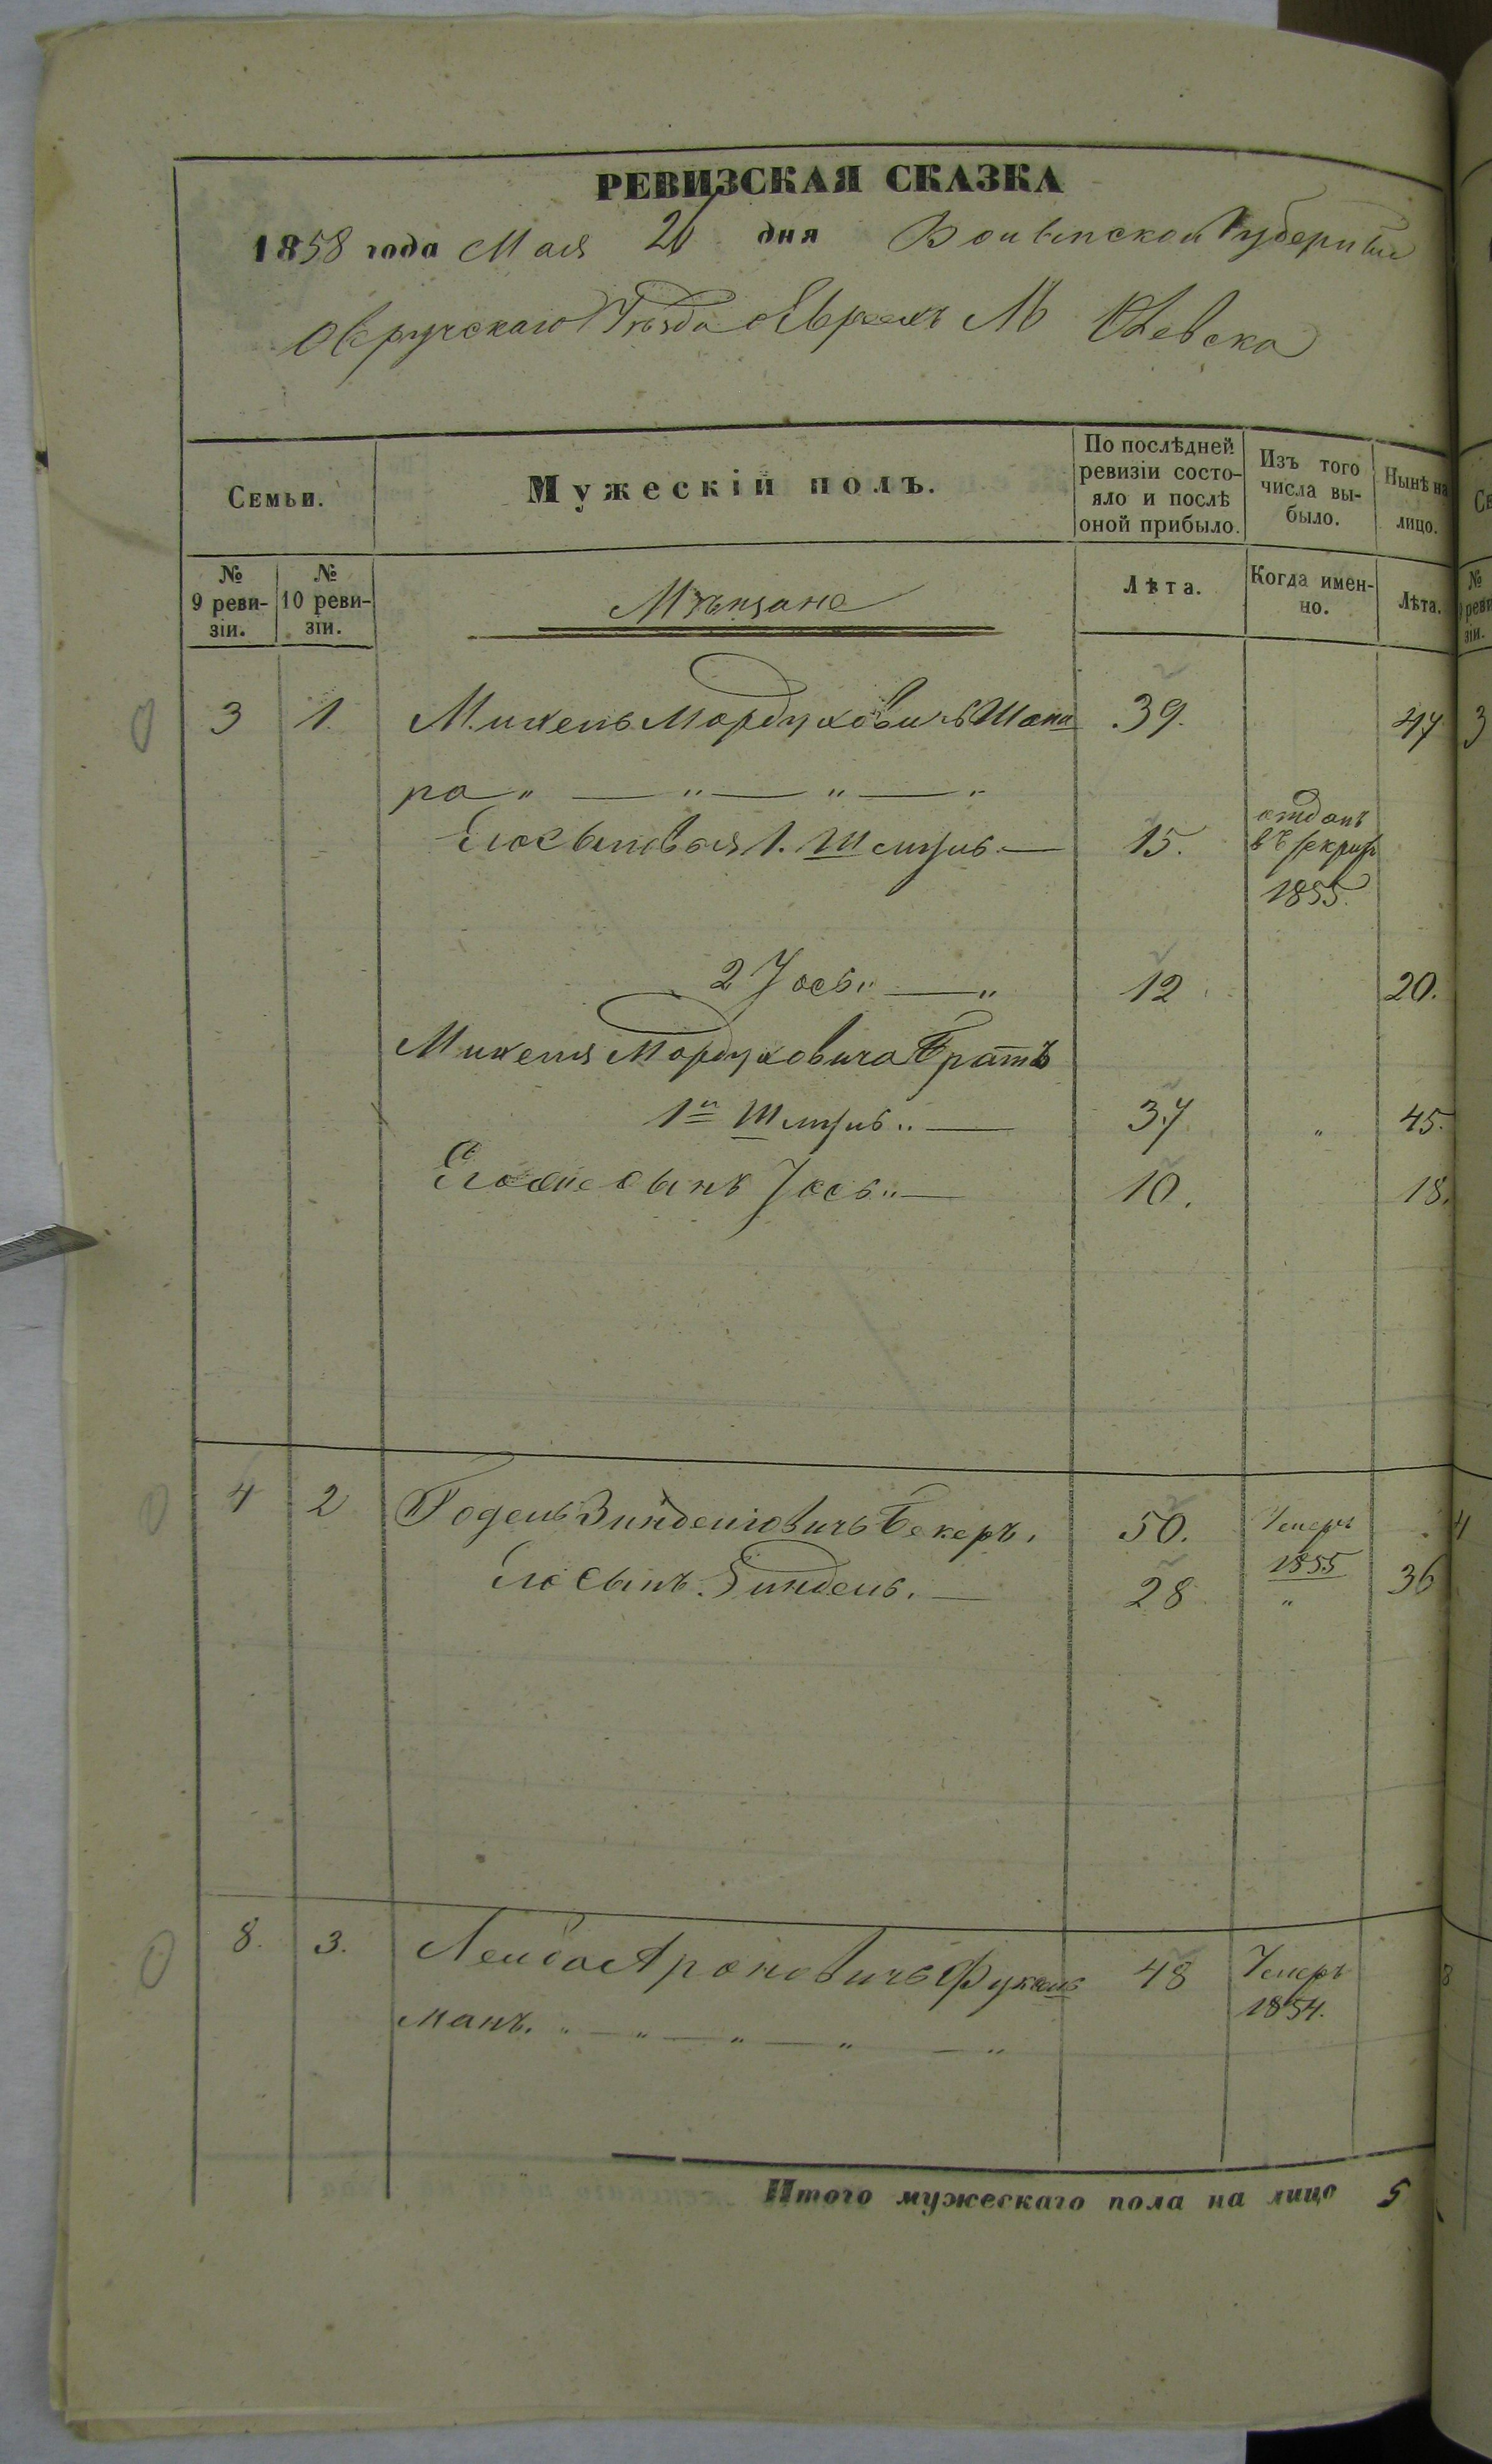 РЕВИЗСКАЯ СКАЗКА
1858 года Мая 26 дня Волынской Губерніи
Овручскаго Уѣзда о Евреяхъ М Олевска
Семьи.
Мужескій полъ.
По послѣдней ревизіи состо-
яло и послѣ
оной прибыло.
Изъ того
числа вы-
было.
Нынѣ на
лицо.
№
9 реви-
зіи.
№
10 реви-
зіи.
Мѣщане
Лѣта.
Когда имен-
но.
Лѣта.
3 1. Михель Мордуховичъ Шапи 39. 47
ра " — " — " — "
Его сыновья 1. Шмуль — 15. отданъ
въ рекрут
1855.
2 Іось " — " 12 20.
Михеля Мордуховича Братъ
1й Шмуль " — 37 " 45.
Его же сынъ Іось " — 10. 18.
4 2 Годель Зинделіовичъ Бекеръ. 50. Умеръ
1855
Его Сынъ Зиндель. — 28 " 36
8. 3. Лейба Ароновичъ Фукель 48 Умеръ
1854.
манъ. " — " — " — " — "
Итого мужескаго пола на лицо 5